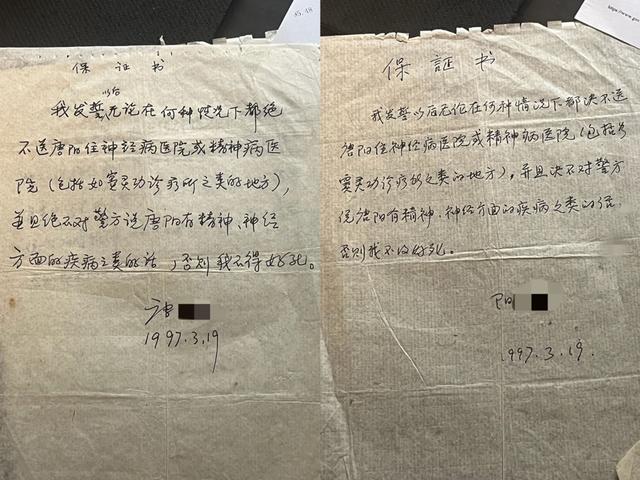 35.48
保 证 书
以后
我发誓无论在何种情况下都绝
不送唐阳住神经病医院或精神病医
院（包括如赛灵功诊疗所之类的地方），
并且绝不对警方说唐阳有精神、神经
方面的疾病之类的话，否则我不得好死。
唐
1997.3.19
https://www.gov
保 証 书
我发誓以后无伦在何种情况下都决不送
唐阳住神经病医院或精神病医院（包括
赛灵功诊疗所之类的地方），并且决不对警方
说唐阳有精神、神经方面的疾病之类的话，
否则我不得好死。
阳
1997.3.19.